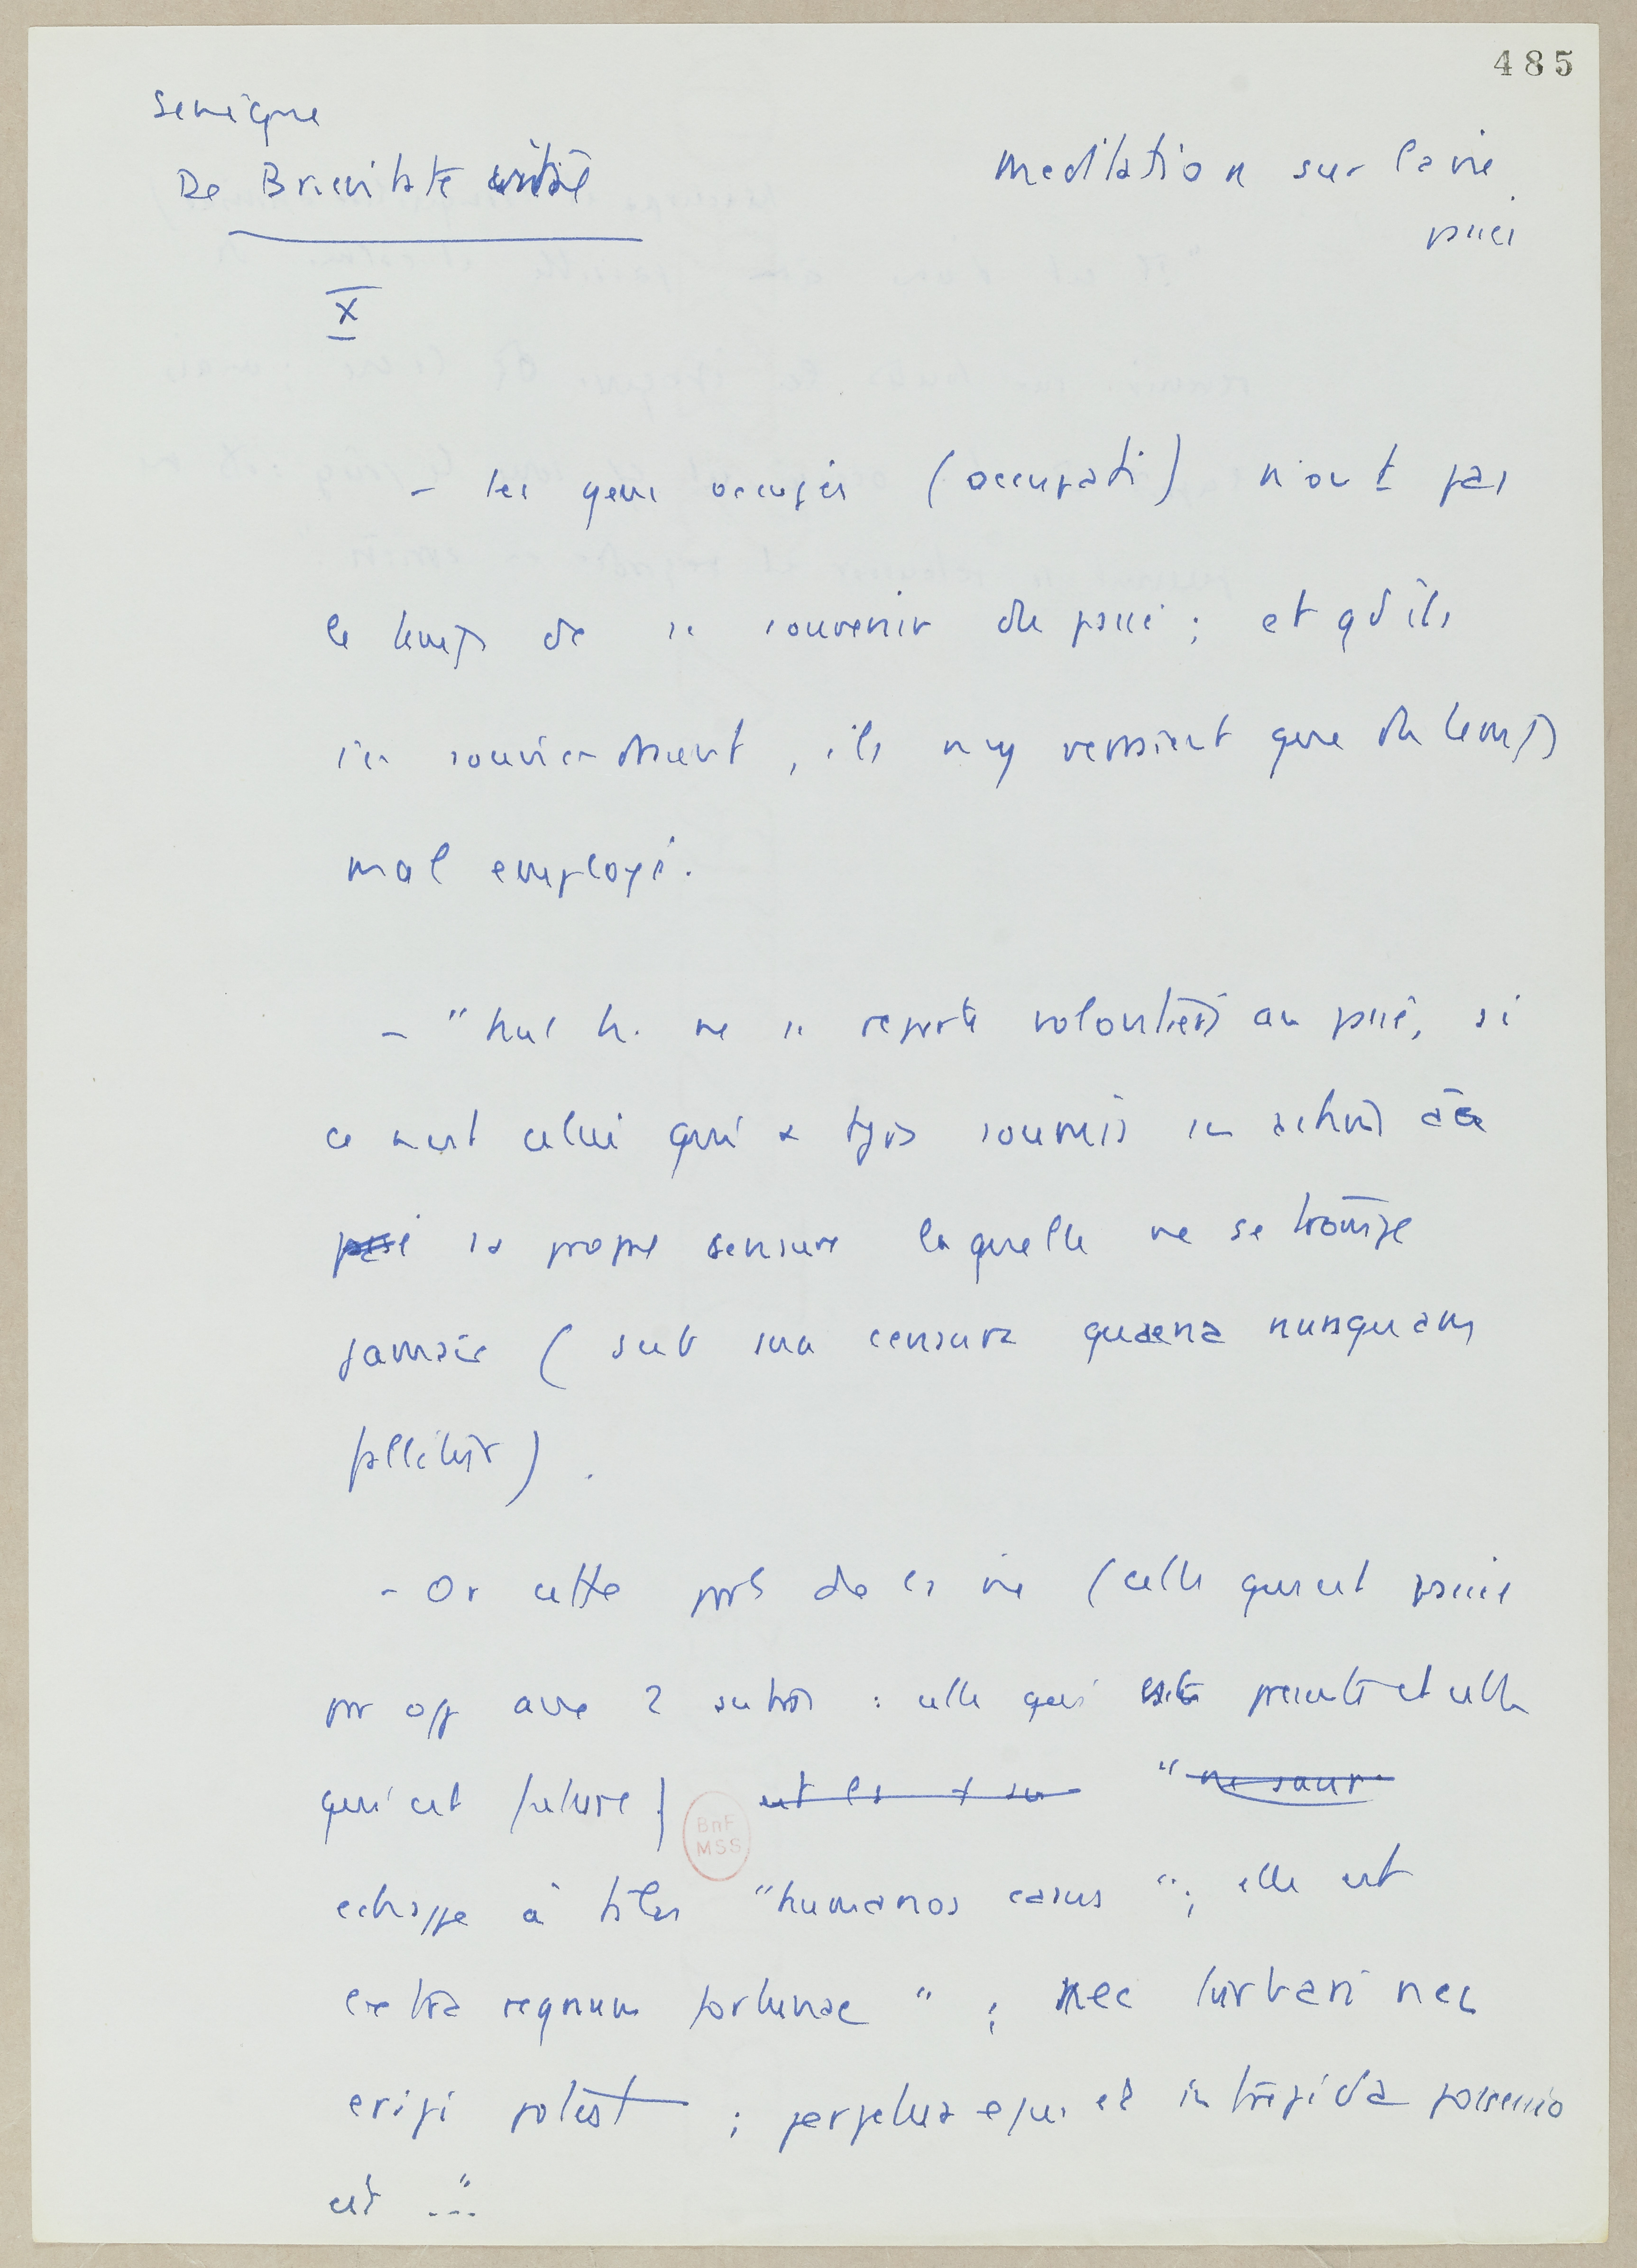 485
Seneque
De Brevitate vitae
Meditation sur la vie
passée
X
- les gens occupés (occupati) n'ont pas
le temps de se souvenir du passé ; et qd ils
s'en souviendraient, ils n'y verraient que du temps
mal employé.
- "Nul h. ne se reporte volontiers au passé, si
ce n'est celui qui a tjrs soumis ses actions à
sa propre censure laquelle ne se trompe
jamais ( sub sua censura quae nunquam
fallitur) .
- Or cette part de la vie (celle qui est passée
par opp aux 2 autres : celle qui est presente et celle
qui est future)
BnF
MSS
echappe à ts les "humanos casus" ; elle est
extra regnum fortunae" ; nec turbari nec
eripi potest ; perpetua ejus et intrepida possessio
est ..."